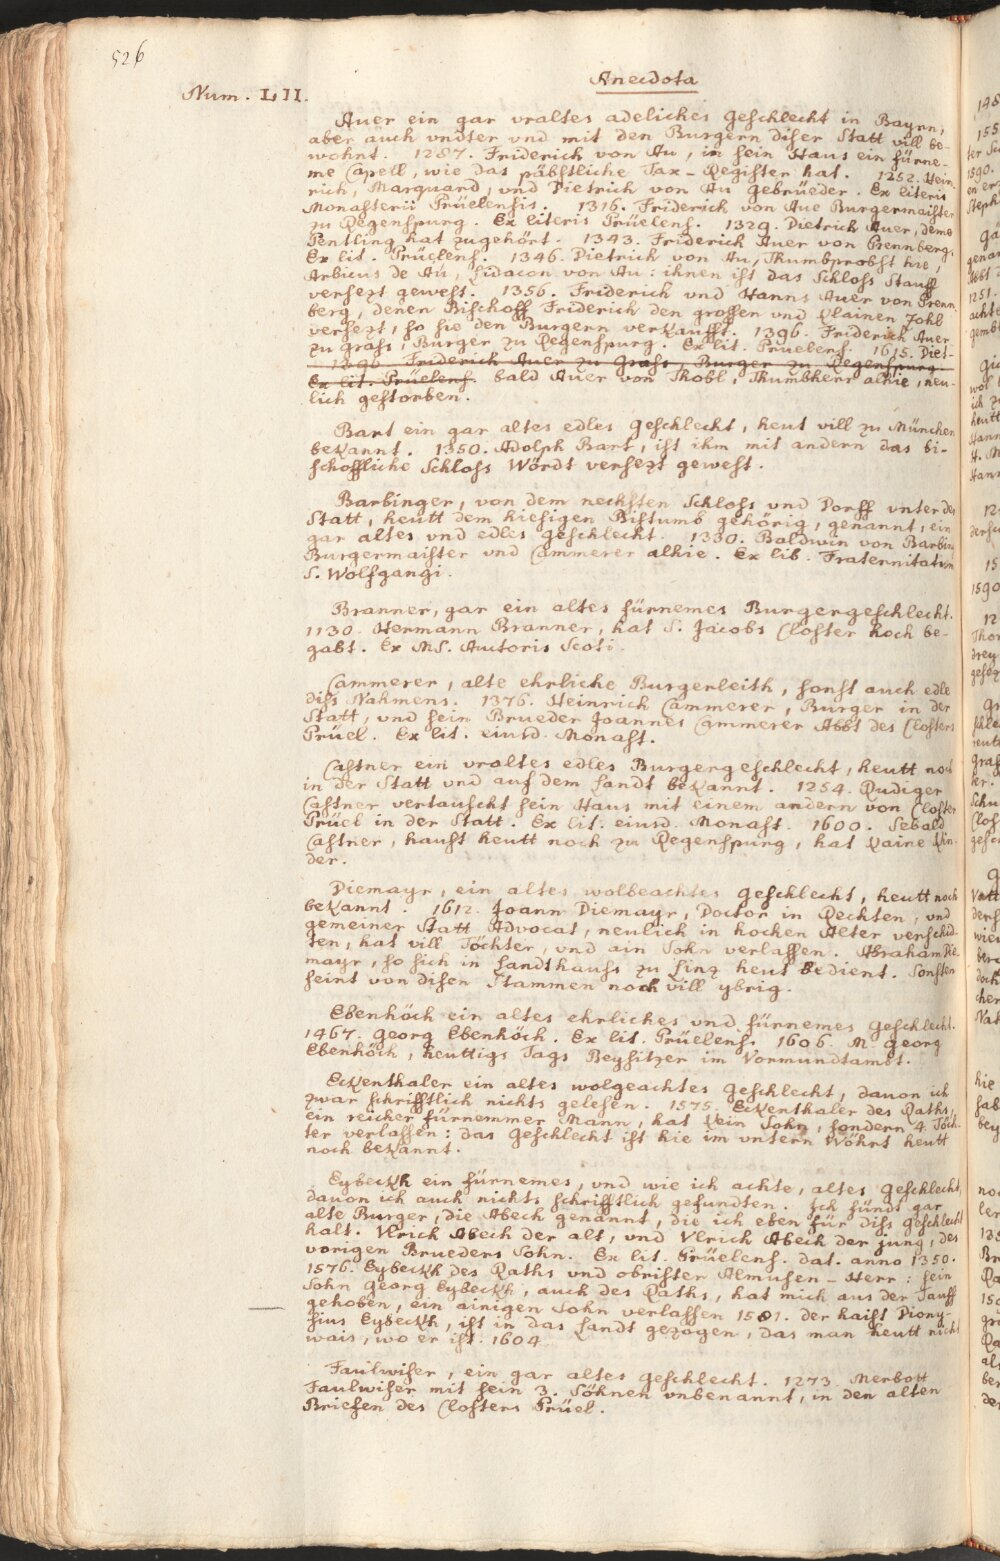 526
Anecdota
Num. LII.
Auer ein gar vraltes adeliches Geschlecht in Bayrn,
aber auch vndter vnd mit den Burgern diser Statt vill be-
wohnt. 1287. Friderich von Au, in sein Haus ein fürne-
me Capell, wie das päbstliche Tax-Register hat. 1252. Hein-
rich, Marquard, vnd Dietrich von Au Gebrüeder. Ex literis
Monasterii Prüelensis. 1316. Friderich von Aue Burgermaister
zu Regenspurg. Ex literis Prüelens. 1329. Dietrich Auer, deme
Pentling hat zugehört. 1343. Friderich Auer von Brennberg,
Ex lit. Prüelens. 1346. Dietrich von Au, Thumbprobst hie,
Arbicus de Au, Hidacon von Au: ihnen ist das Schloss Stauff
versezt gewest. 1356. Friderich vnd Hanns Auer von Prenn
berg, denen Bischoff Friderich den grossen vnd klainen Zohl
versezt, so sie den Burgern verkaufft. 1396. Friderich Auer
zu Grass, Burger zu Regenspurg. Ex lit. Prüelens. 1615. Diet-
1396. Friderich Auer zu Grass, Burger zu Regenspurg.
Ex lit. Prüelens. bald Auer von Thobl, Thumbherr alhie, neu-
lich gestorben.
Bart ein gar altes edles Geschlecht, heut vill zu München
bekannt. 1350. Adolph Bart, ist ihm mit andern das bi-
schoffliche Schloss Wördt versezt gewest.
Barbinger, von dem nechsten Schloss vnd Dorff vnter der
Statt, heutt dem hiesigen Bistumb gehörig, genannt, ein
gar altes vnd edles Geschlecht. 1330. Baldwin von Barbing
Burgermaister vnd Cammerer alhie. Ex lib. Fraternitatum
S. Wolfgangi.
Branner, gar ein altes fürnemes Burgergeschlecht.
1130. Hermann Branner, hat S. Jacobs Closter hoch be-
gabt. Ex MS. Auctoris Scoti.
Cammerer, alte ehrliche Burgerleith, sonst auch edle
diss Nahmens. 1376. Heinrich Cammerer, Burger in der
Statt, vnd sein Brueder Joannes Cammerer Abbt des Closters
Prüel. Ex lit. eiusd. Monast.
Castner ein vraltes edles Burgergeschlecht, heutt noch
in der Statt vnd auf dem Landt bekannt. 1254. Rudiger
Castner vertauscht sein Haus mit einem andern von Closter
Prüel in der Statt. Ex lit. eiusd. Monast. 1600. Sebald
Castner, haust heutt noch zu Regenspurg, hat kaine Kin-
der.
Diemayr, ein altes wolbeachtes Geschlecht, heutt noch
bekannt. 1612. Joann Diemayr, Doctor in Rechten, vnd
gemeiner Statt Advocat, neulich in hochen Alter verschid-
ten, hat vill Töchter, vnd ain Sohn verlassen. Abraham Die-
mayr, so sich in Landthauss zu Linz heut bedient. Sonsten
seint von disen Stammen noch vill ybrig.
Ebenhöch ein altes ehrliches vnd fürnemes Geschlecht.
1467. Georg Ebenhöch. Ex lit. Prüelens. 1606. M. Georg
Ebenhöch, heuttigs Tags Beysitzer im Vormundtambt.
Eckenthaler ein altes wolgeachtes Geschlecht, dauon ich
zwar schrifftlich nichts gelesen. 1575. Eckenthaler des Raths,
ein reicher fürnemmer Mann, hat kein Sohn, sondern 4. Töch-
ter verlassen: das Geschlecht ist hie im vntern Wöhrt heutt
noch bekannt.
Eybeckh ein fürnemes, vnd wie ich achte, altes Geschlecht,
dauon ich auch nichts schrifftlich gefundten. Ich fündt gar
alte Burger, die Abech genannt, die ich eben für diss Geschlecht
halt. Vlrich Abech der alt, vnd Vlrich Abech der jung, des
vorigen Brueders Sohn. Ex lit. Prüelens. dat. anno 1350.
1576. Eybeckh des Raths vnd obrister Almusen-Herr: sein
Sohn Georg Eybeckh, auch des Raths, hat mich aus der Tauff
gehoben, ein ainigen Sohn verlassen 1581. der haist Diony-
sius Eybeckh, ist in das Landt gezogen, das man heutt nicht
wais, wo er ist. 1604.
Faulwiser, ein gar altes Geschlecht. 1273. Merbott
Faulwiser mit sein 3. Söhnen vnbenannt, in den alten
Briefen des Closters Prüel.